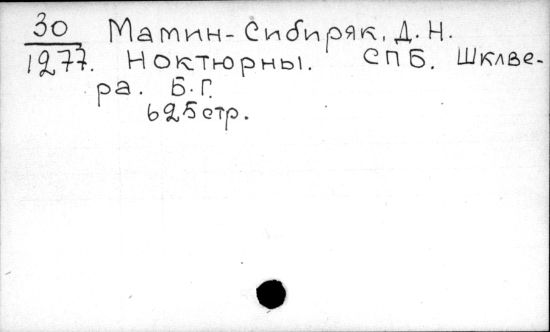 30 Мамин-Сибиряк, Д. Н.
1277. Ноктюрны. СПБ. Шклве-
ра. Б.Г.
625 стр.